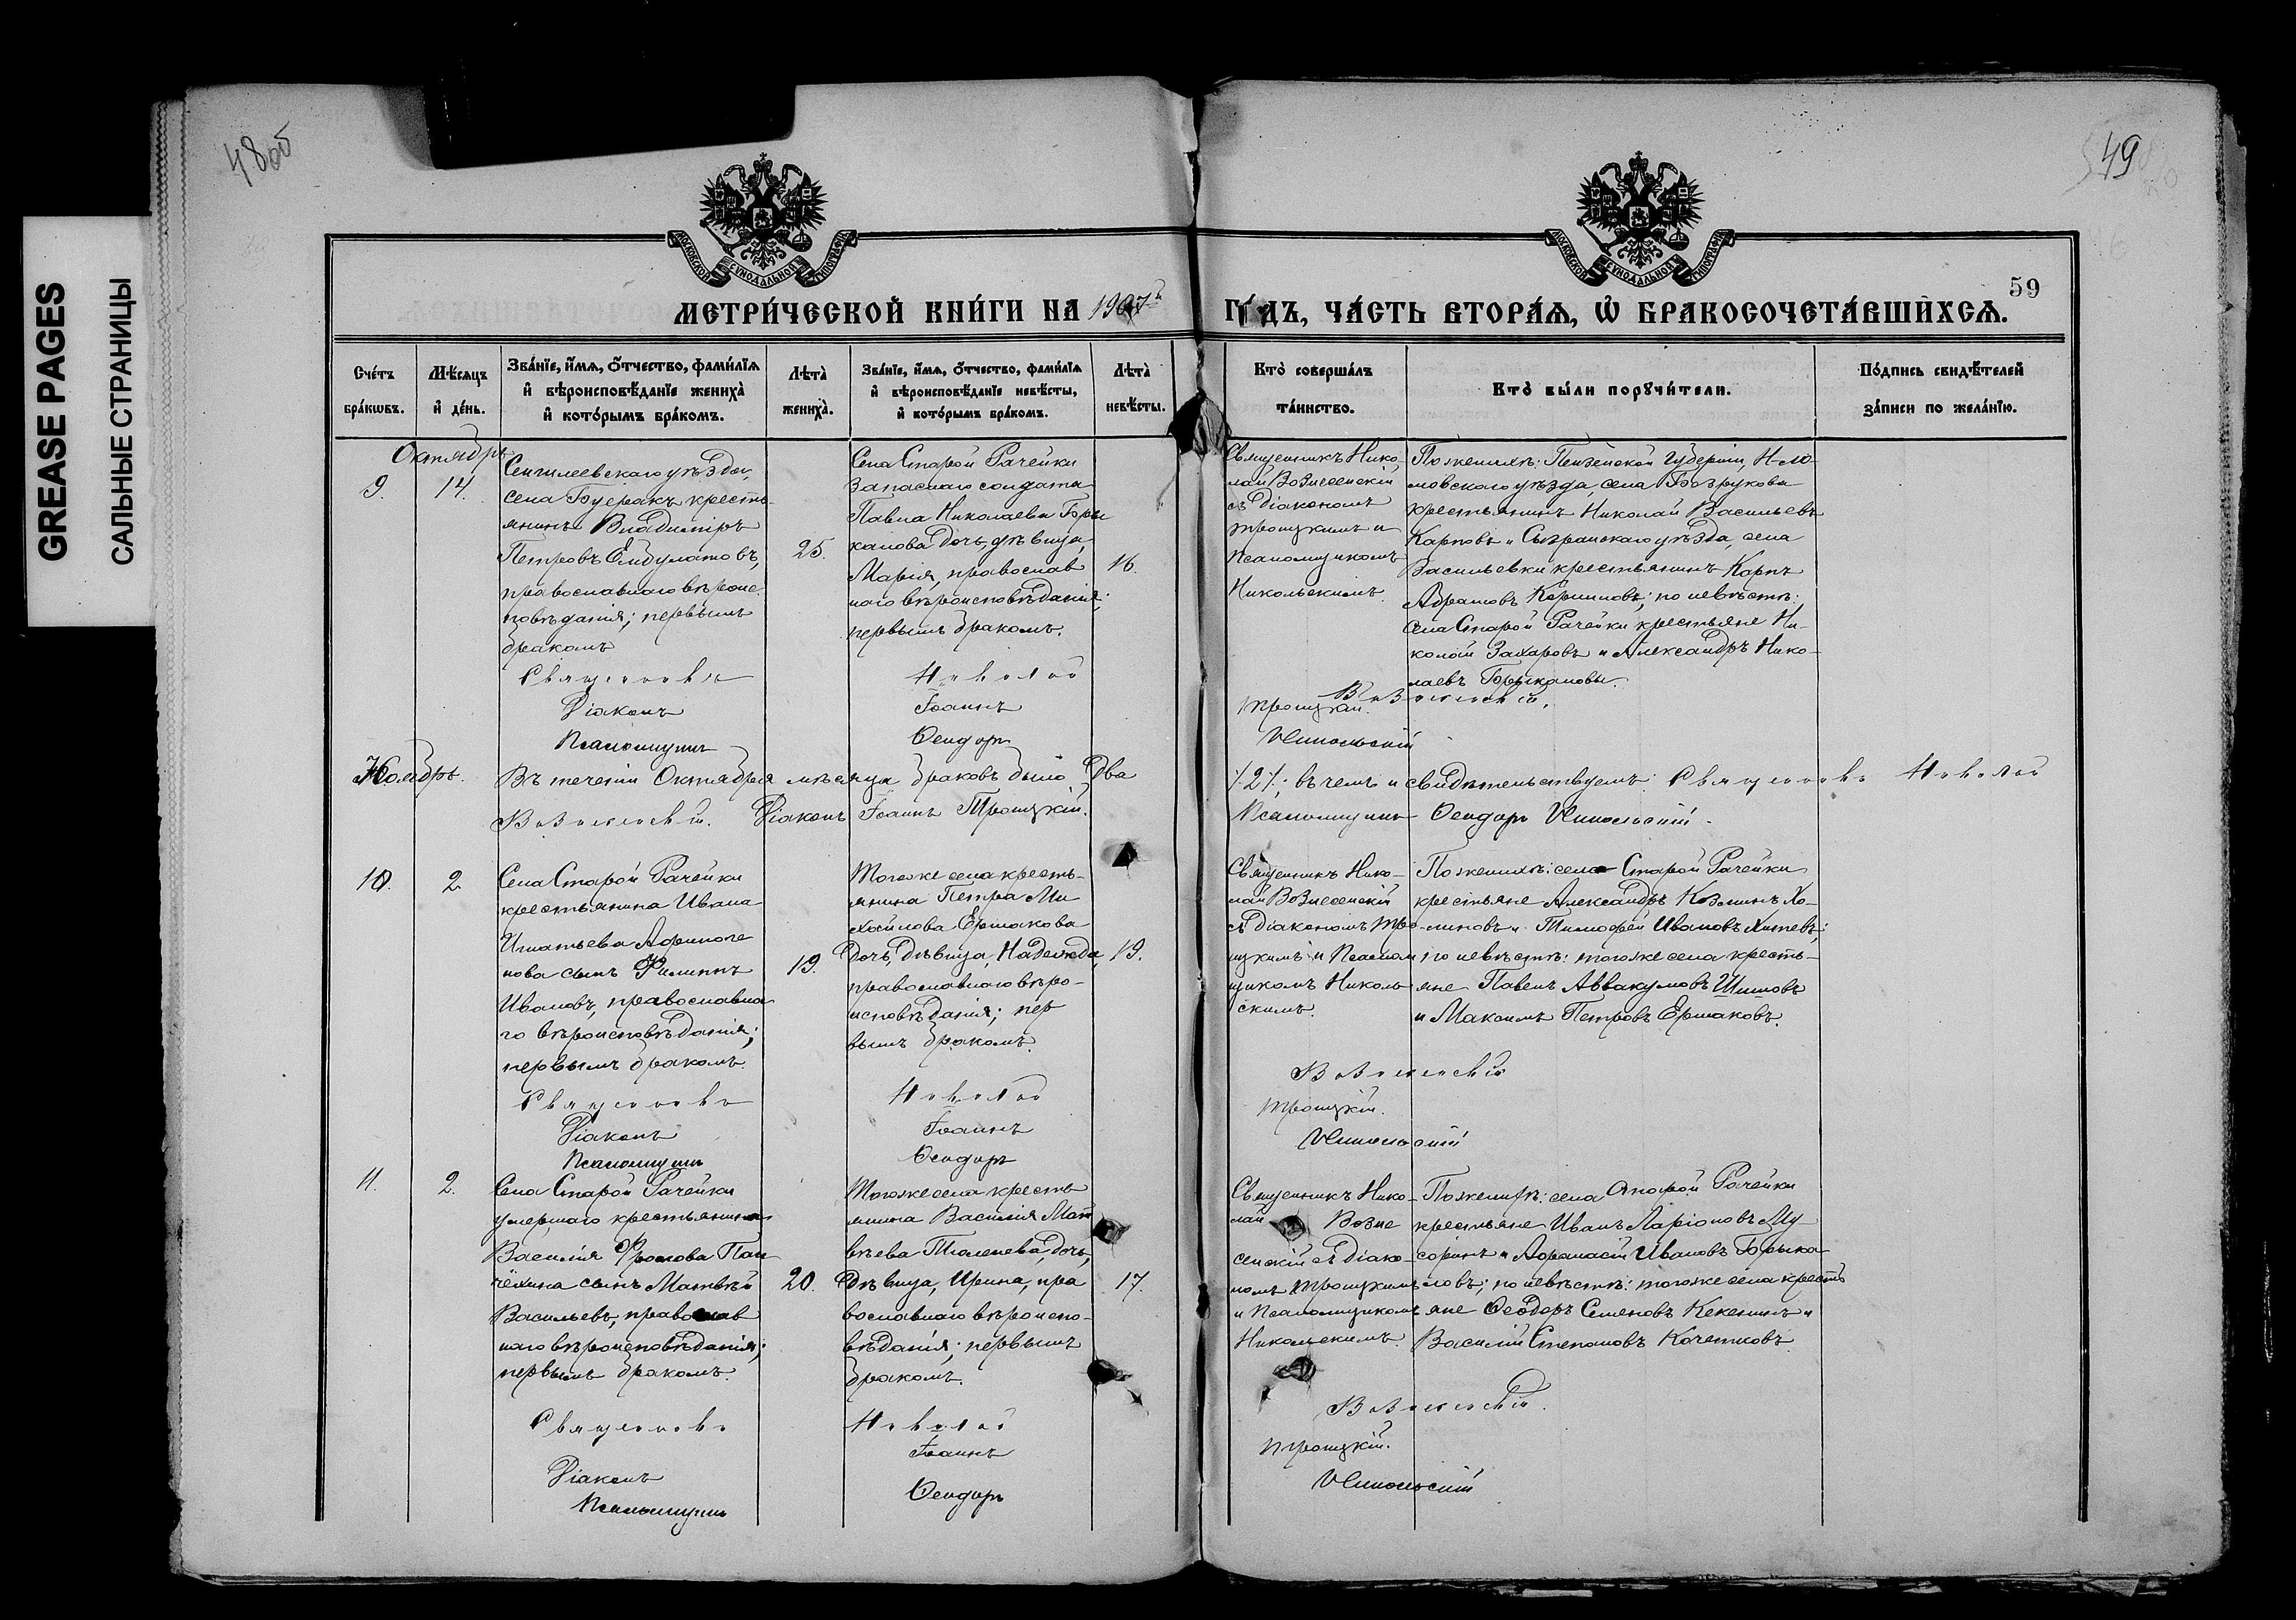 GREASE PAGES
САЛЬНЫЕ СТРАНИЦЫ
48об
49
59
МОСКОВСКОЙ СѴНОДАЛЬНОЙ ТИПОГРАФІИ
МОСКОВСКОЙ СѴНОДАЛЬНОЙ ТИПОГРАФІИ
МЕТРИ́ЧЕСКОЙ КНИ́ГИ НА 1907й ГО́ДЪ, ЧА́СТЬ ВТОРА́Ѧ, Ѡ҆ БРАКОСОЧЕТА́ВШИХСѦ.
Сче́тъ
бра́кѡвъ.
Мѣ́сѧцъ
и҆ де́нь.
Зва́нїе, и҆́мѧ, ѻ҆́тчество, фами́лїѧ
и҆ вѣроисповѣ́данїе жениха̀
и҆ кото́рымъ бра́комъ.
Лѣта̀
жениха̀.
Зва́нїе, и҆́мѧ, ѻ҆́тчество, фами́лїѧ
и҆ вѣроисповѣ́данїе невѣ́сты,
и҆ кото́рымъ бра́комъ.
Лѣта̀
невѣ́сты.
Кто̀ соверша́лъ
та́инство.
Кто̀ бы́ли порꙋчи́тели.
По́дпись свидѣ́телей
за́писи по жела́нїю.
Октябрь
9.
14.
Сенгилеевскаго уѣзда,
села Буеракъ кресть-
янинъ Владиміръ
Петровъ Елбулатовъ,
православнаго вѣроис-
повѣданія; первымъ
бракомъ
25.
Села Старой Рачейки
запаснаго солдата
Павла Николаева Горы
калова дочь, дѣвица,
Марія, православ
наго вѣроисповѣданія;
первымъ бракомъ.
16.
Священникъ Нико-
лай Вознесенскій
съ діакономъ
Троицкимъ и
Псаломщикомъ
Никольскимъ.
По женихѣ: Пензенской губерніи, Н-Ло-
мовскаго уѣзда, села
крестьянинъ Николай Васильевъ
Карповъ и Сызранскаго уѣзда, села
Васильевки крестьянинъ Карпъ
Абрамовъ; по невѣстѣ:
села Старой Рачейки крестьяне Ни-
колай Захаровъ и Александръ Нико-
лаевъ Горыкаловы.
Священникъ Николай Вознесенскій.
Діаконъ Іоаннъ Троицкій.
Псаломщикъ Ѳеодоръ Никольскій
Ноябрь.
Въ теченіи Октября мѣсяца браковъ было два /2/; въ чемъ и свидѣтельствуемъ: Священникъ Николай
Вознесенскій. Діаконъ Іоаннъ Троицкій. Псаломщикъ Ѳеодоръ Никольскій.
10.
2.
Села Старой Рачейки
крестьянина Ивана
Игнатьева Афиноге
нова сынъ Филиппъ
Ивановъ, православна
го вѣроисповѣданія;
первымъ бракомъ.
19.
Тогоже села кресть-
янина Петра Ми
хайлова Ермакова
дочь, дѣвица, Надежда,
православнаго вѣро-
исповѣданія; пер
вымъ бракомъ.
19.
Священникъ Нико-
лай Вознесенскій
съ діакономъ Тро-
ицкимъ и Псалом
щикомъ Николь
скимъ.
По женихѣ: села Старой Рачейки
крестьяне Александръ Козминъ Хо-
линовъ и Тимофей Ивановъ;
по невѣстѣ: тогоже села кресть-
яне Павелъ Аввакумовъ Шишовъ
и Максимъ Петровъ Ермаковъ.
Священникъ Николай Вознесенскій
Діаконъ Іоаннъ Троицкій.
Псаломщикъ Ѳеодоръ Никольскій
11.
2.
Села Старой Рачейки
умершаго крестьянина
Василія Фролова Пан
чёхина сынъ Матвѣй
Васильевъ, православ
наго вѣроисповѣданія;
первымъ бракомъ.
20.
Тогоже села кресть
янина Василія Мат
вѣева Тюленева, дочь,
дѣвица, Ирина, пра
вославнаго вѣроиспо-
вѣданія; первымъ
бракомъ.
17.
Священникъ Нико-
лай Возне
сенскій съ діако-
номъ Троицкимъ
и Псаломщикомъ
Никольскимъ.
По женихѣ: села Старой Рачейки
крестьяне Иванъ Ларіоновъ Му
соринъ и Афанасій Ивановъ Горыка
ловъ; по невѣстѣ: тогоже села кресть
яне Ѳеодоръ Семеновъ Кекеминъ и
Василій Степановъ Кочетковъ.
Священникъ Николай Вознесенскій.
Діаконъ Іоаннъ Троицкій.
Псаломщикъ Ѳеодоръ Никольскій